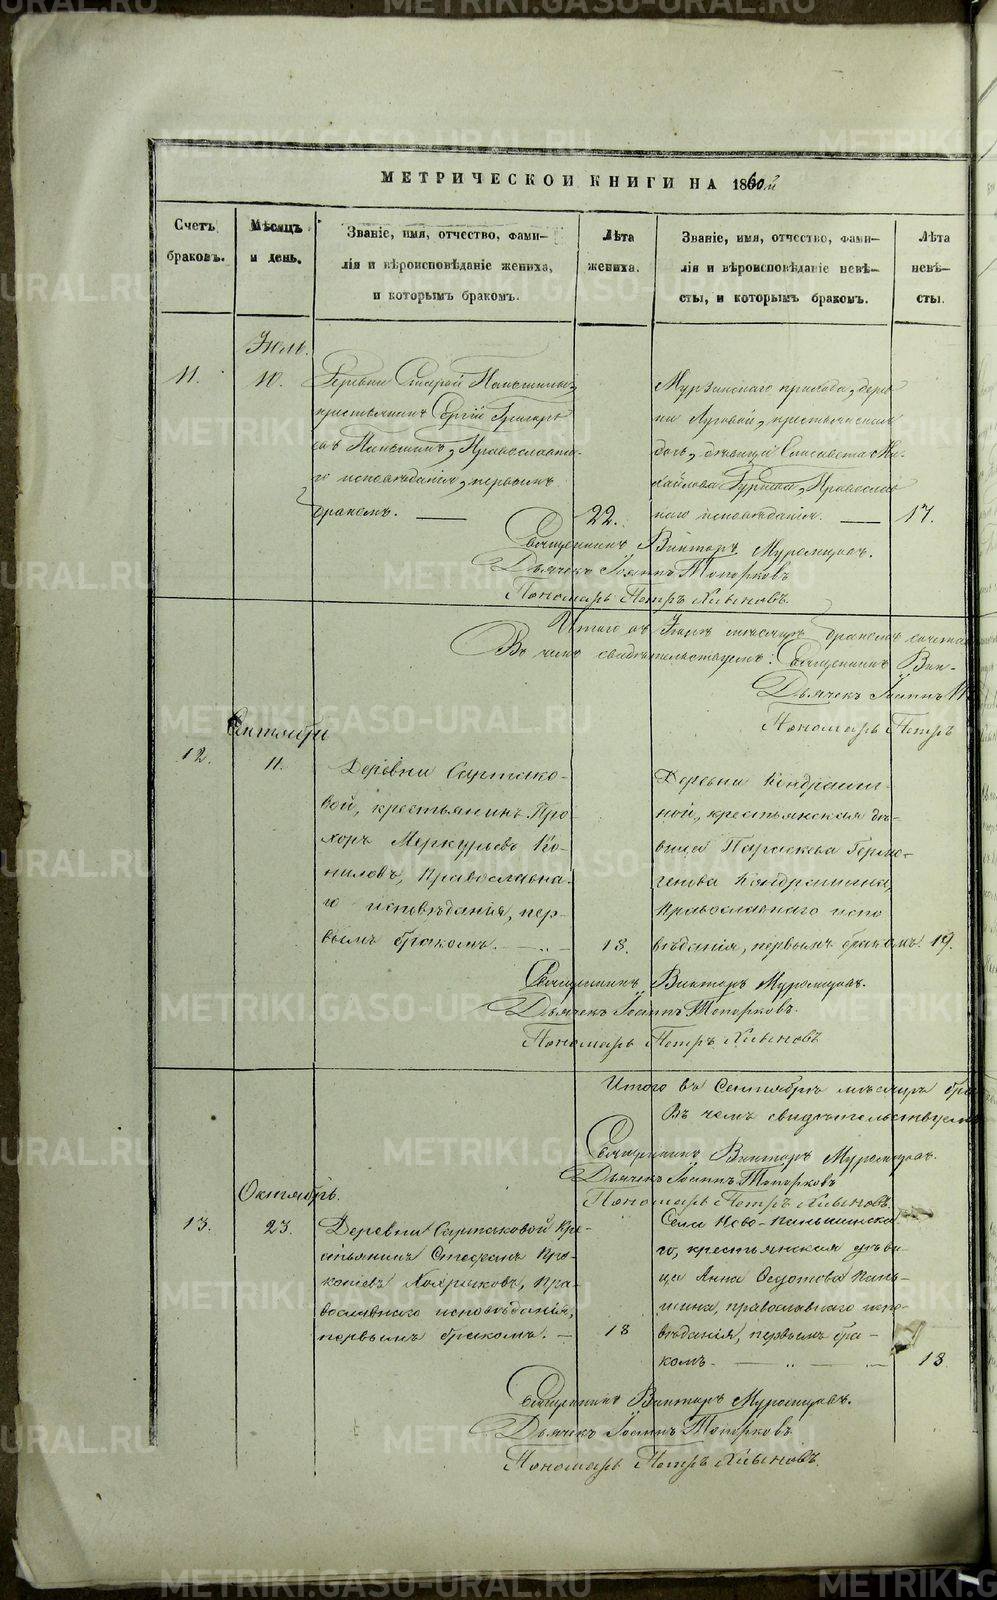 МЕТРИЧЕСКОЙ КНИГИ НА 1860й
Счетъ браковъ.
Мѣсяцъ и день.
Званіе, имя, отчество, фами-
лія и вѣроисповѣданіе жениха,
и которымъ бракомъ.
Лѣта жениха.
Званіе, имя, отчество, фами-
лія и вѣроисповѣданіе невѣ-
сты, и которымъ бракомъ.
Лѣта невѣ-
сты.
Іюль.
11.
10.
Деревни Старой Паньшиной,
крестьянинъ Сергій Григорь-
евъ Паньшинъ, Православна-
го исповѣданія, первымъ
бракомъ.
22.
Мурзинскаго прихода, дерев
ни Луговой, крестьянская
дочь, дѣвица Елисавета Ми-
хайлова, Православ
наго исповѣданія.
17.
Священникъ Викторъ Муромцовъ.
Дьячекъ Іоаннъ Топорковъ
Пономарь Петръ Хлыновъ.
Итого въ Іюлѣ мѣсяцѣ бракомъ сочета
Въ чемъ свидѣтельствуемъ: Священникъ Вик-
Дьячекъ Іоаннъ
Пономарь Петръ
Сентябрь
12.
11.
Деревни Сартако-
вой, крестьянинъ Про-
хоръ Меркурьевъ Ко-
ниловъ, Православна-
го исповѣданія, пер-
вымъ бракомъ.
18.
Деревни Кондраши-
ной, крестьянская дѣ-
вица Параскева Гермо-
генова Кондрашина,
Православнаго испо
вѣданія, первымъ бракомъ.
19.
Священникъ Викторъ Муромцовъ.
Дьячекъ Іоаннъ Топорковъ.
Пономарь Петръ Хлыновъ
Итого въ Сентябрѣ мѣсяцѣ бра
Въ чемъ свидѣтельствуемъ
Священникъ Викторъ Муромцовъ.
Дьячекъ Іоаннъ Топорковъ
Пономарь Петръ Хлыновъ.
Октябрь.
13.
23.
Деревни Сартаковой Кре-
стьянинъ Стефанъ Про-
копіевъ, Пра-
вославнаго исповѣданія,
первымъ бракомъ.
18
Села Ново-Паньшинска
го, крестьянская дѣви-
ца Анна Федотова Пань-
шина, православнаго испо-
вѣданія, первымъ бра-
комъ.
18
Священникъ Викторъ Муромцовъ.
Дьячекъ Іоаннъ Топорковъ.
Пономарь Петръ Хлыновъ.
METRIKI.GASO-URAL.RU